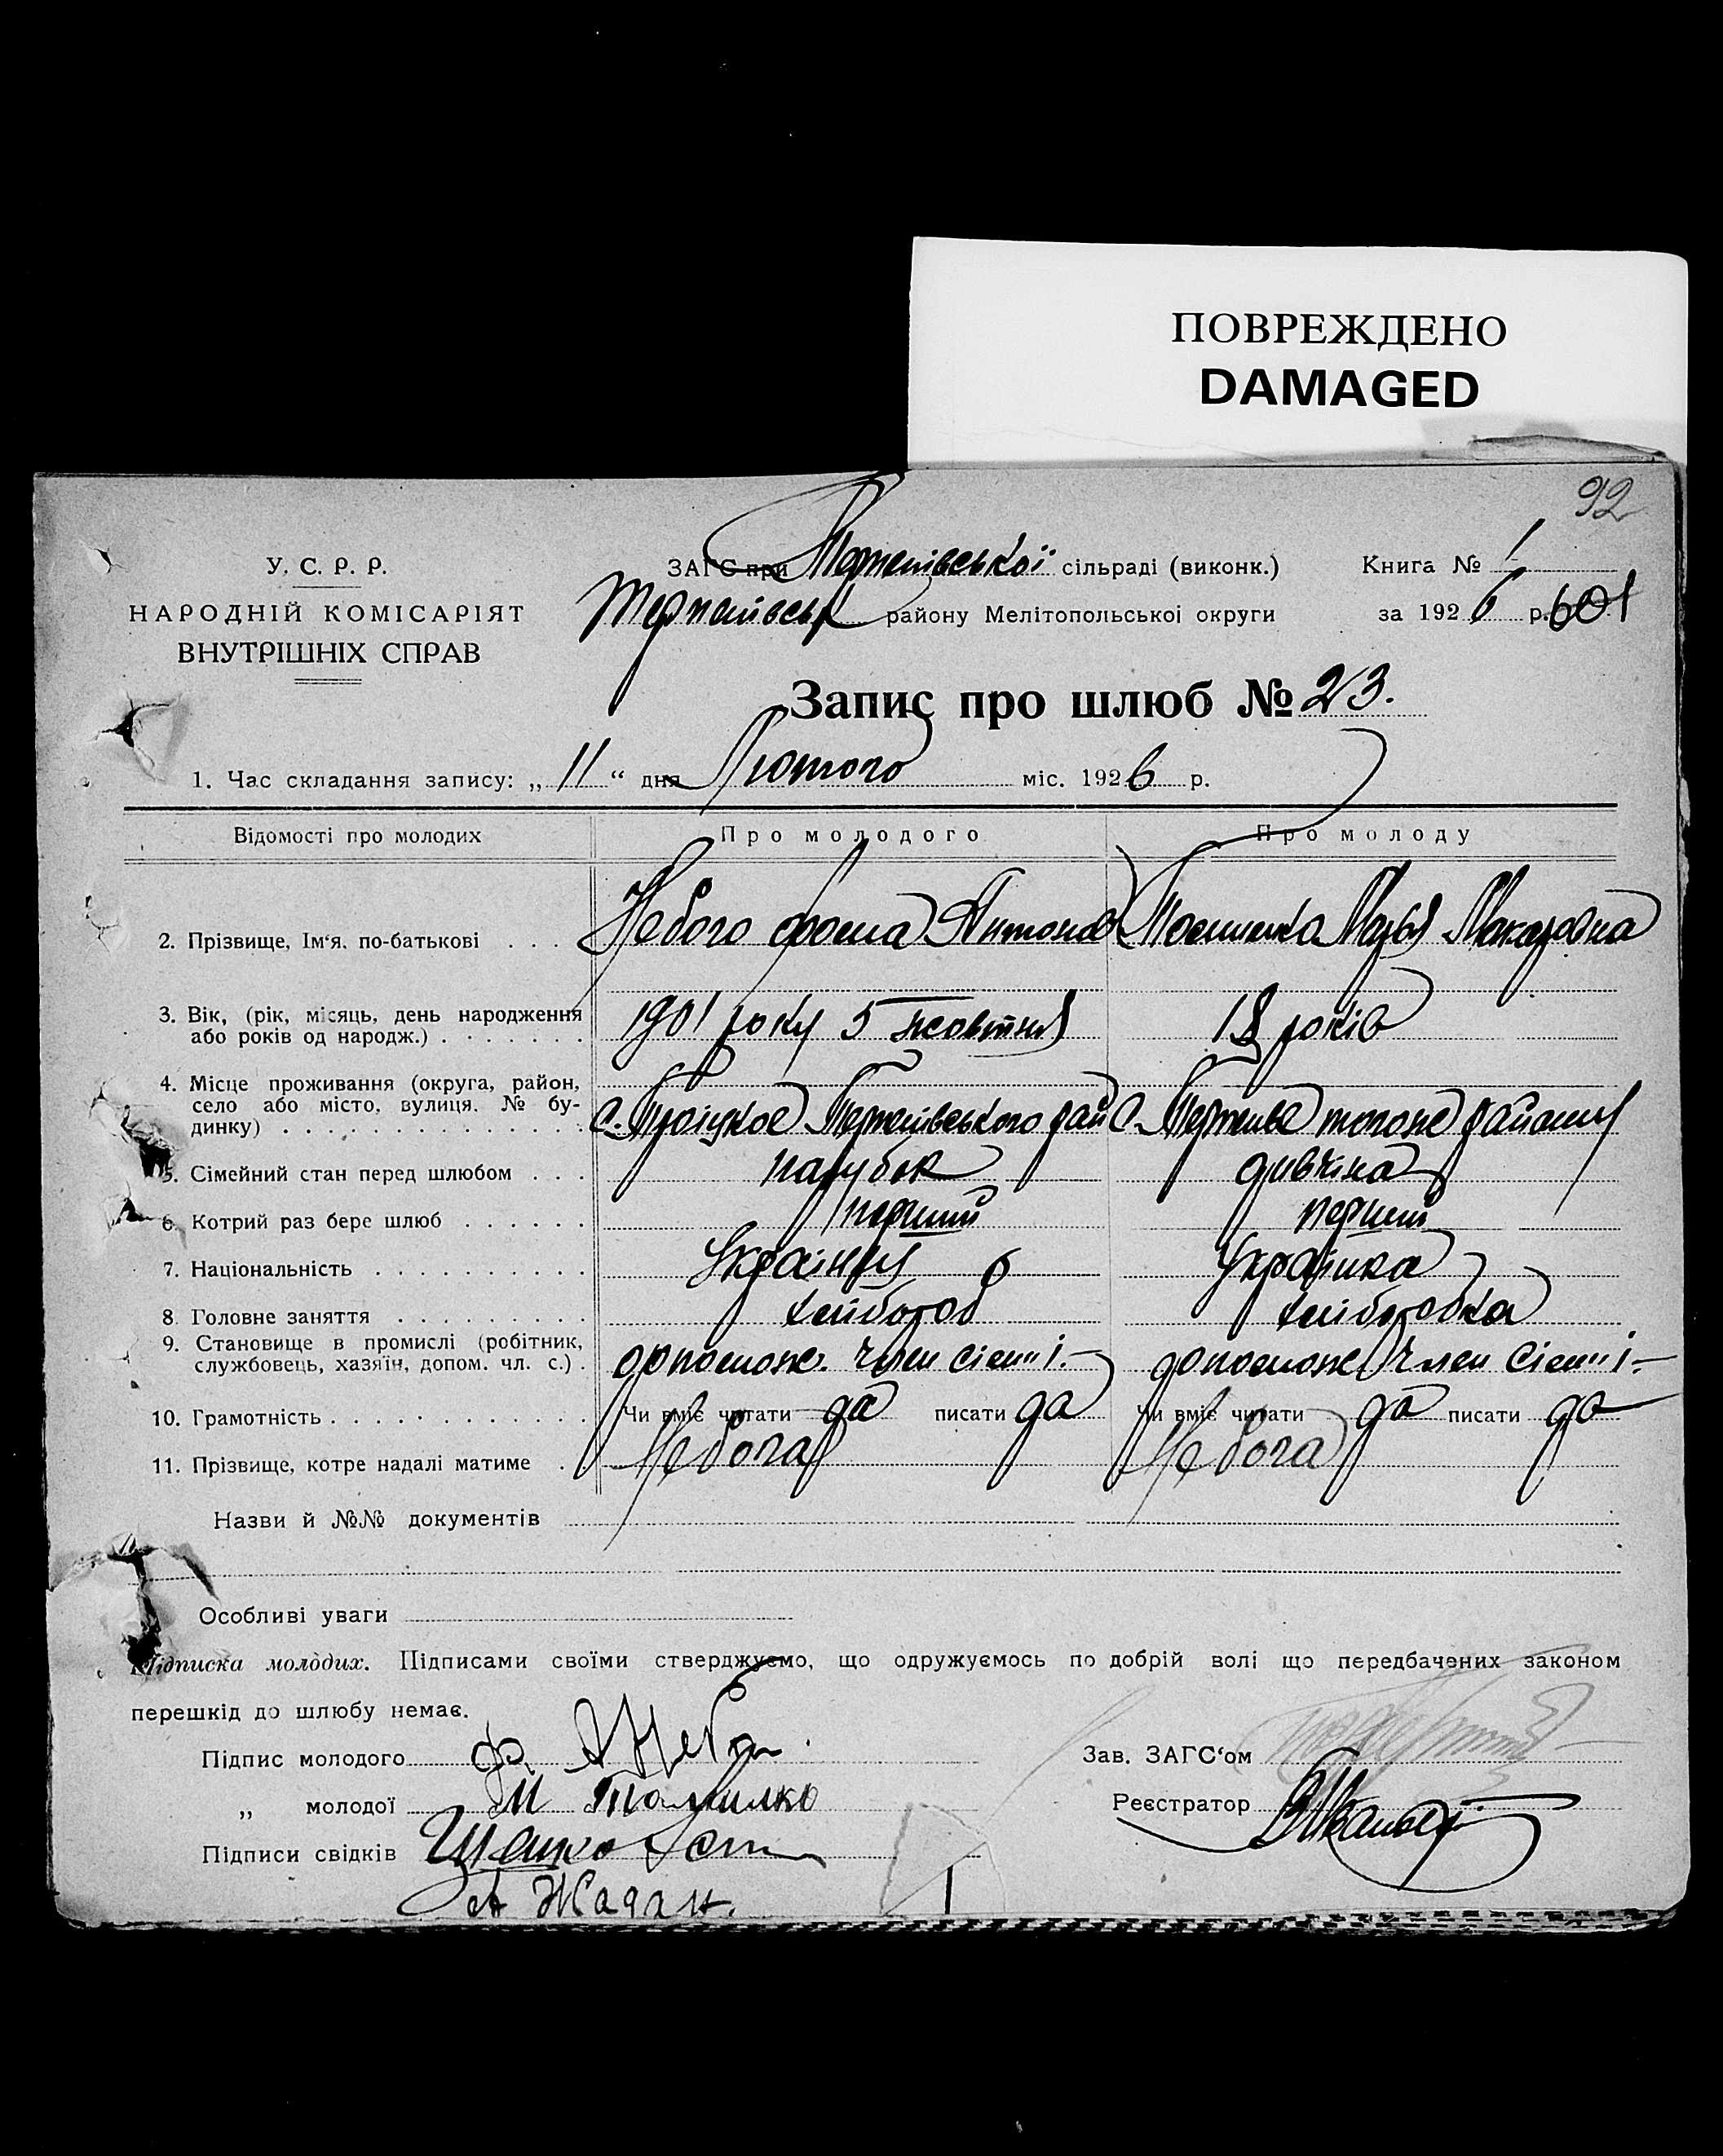 ПОВРЕЖДЕНО
DAMAGED
92
У. С. Р. Р.
НАРОДНІЙ КОМІСАРІЯТ
ВНУТРІШНІХ СПРАВ
ЗАГС при Терпенівської сільраді (виконк.)
Терпенівськ району Мелітопольської округи
Книга № 1
за 1926 р. 601
Запис про шлюб № 23.
1. Час складання запису: „ 11 “ дня Лютого міс. 1926 р.
Відомості про молодих Про молодого Про молоду
2. Прізвище, Ім‘я, по-батькові . . . Небога Фома Антонов Марья Макаровна
3. Вік, (рік, місяць, день народження
або років од народж.) . . . . . . . 1901 року 5 жовтня 18 років
4. Місце проживання (округа, район,
село або місто, вулиця, № бу-
динку) . . . . . . . . . . . . . . с. Троіцкое Терпенівського рай с. Терпенье тогоже району
5. Сімейний стан перед шлюбом . . . парубок дивчіна
6. Котрий раз бере шлюб . . . . . . перший перший
7. Національність . . . . . . . . . . Украінец Украінка
8. Головне заняття . . . . . . . . . хлібороб хліборобка
9. Становище в промислі (робітник,
службовець, хазяїн, допом. чл. с.) . допомож. член сіемьі.— допомож член сіемьі—
10. Грамотність . . . . . . . . . . . . Чи вміє читати да писати да Чи вміє читати да писати да
11. Прізвище, котре надалі матиме . Небога Небога
Назви й №№ документів
Особливі уваги
Підписка молодих. Підписами своїми стверджуємо, що одружуємось по добрій волі що передбачених законом
перешкід до шлюбу немає.
Підпис молодого Ф. А Неба
„ молодої М
Підписи свідків
А Жадан.
Зав. ЗАГС‘ом
Реєстратор